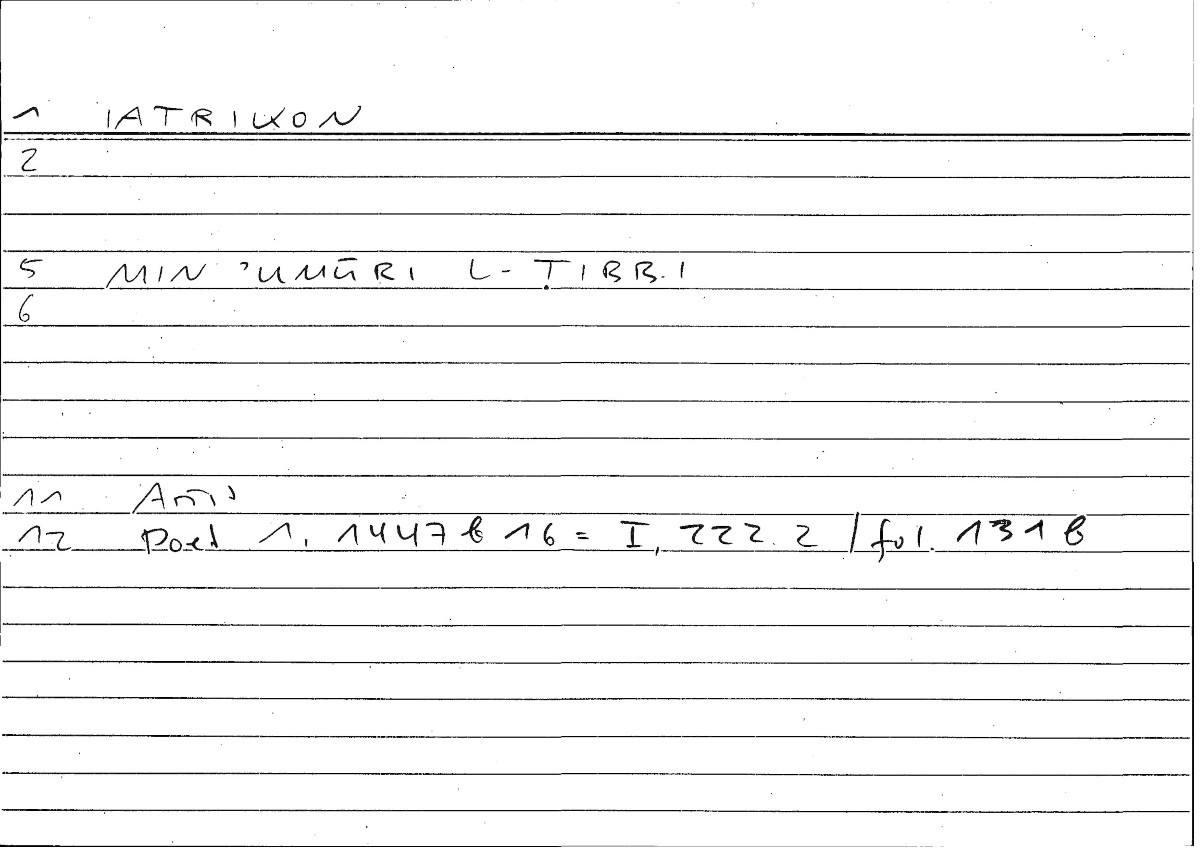 1 IATRIKON
2
5 MIN ʾUMŪRI L-ṬIBB.I
6
11 Aris
12 Poet 1, 1447 b 16 = I, 222.2 / fol. 131 b